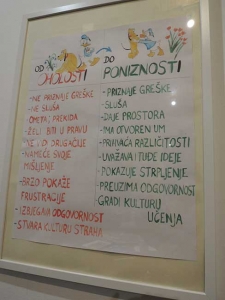 OD
OHOLOSTI
-NE PRIZNAJE GREŠKE
-NE SLUŠA
-OMETA; PREKIDA
-ŽELI BITI U PRAVU
DRUGAČIJE
-NAMEĆE SVOJE
MIŠLJENJE
-BRZO POKAŽE
FRUSTRACIJE
-IZBJEGAVA ODGOVORNOST
-STVARA KULTURU STRAHA
DO
PONIZNOSTI
-PRIZNAJE GREŠKE
-SLUŠA
-DAJE PROSTORA
-IMA OTVOREN UM
-PRIHVAĆA RAZLIČITOSTI
-UVAŽAVA I TUĐE IDEJE
-POKAZUJE STRPLJENJE
-PREUZIMA ODGOVORNOST
GRADI KULTURU
UČENJA